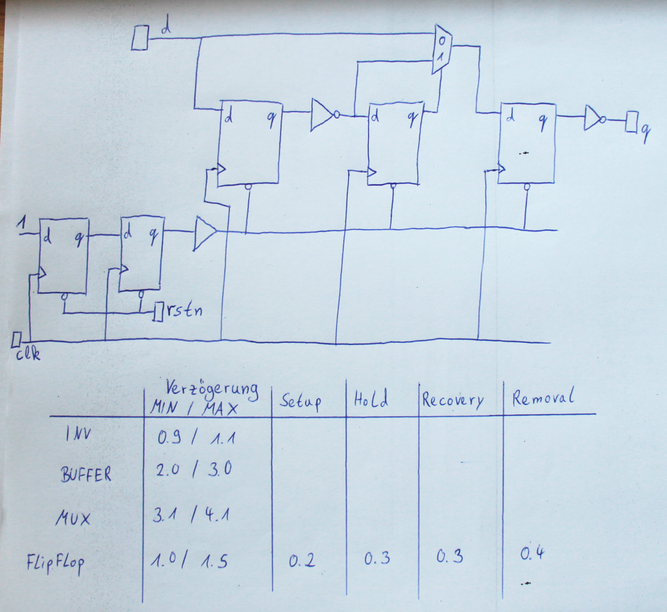 d
0
1
d q
d q
d q
q
1
d q
d q
rstn
clk
Verzögerung
MIN / MAX Setup Hold Recovery Removal
INV 0.9 / 1.1
BUFFER 2.0 / 3.0
MUX 3.1 / 4.1
FlipFlop 1.0 / 1.5 0.2 0.3 0.3 0.4